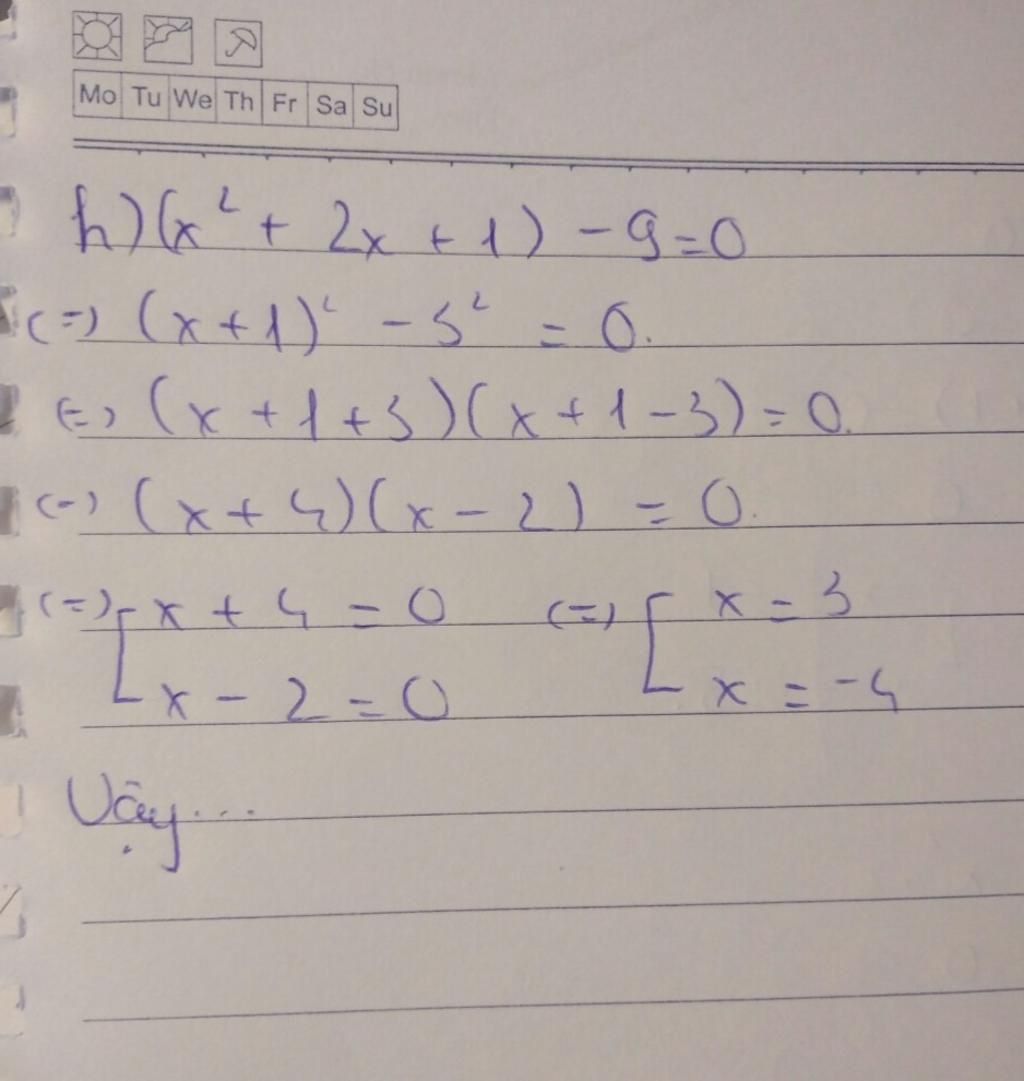 Mo Tu We Th Fr Sa Su
h) (x² + 2x + 1) - 9 = 0
(=) (x + 1)² - 3² = 0.
(=) (x + 1 + 3)(x + 1 - 3) = 0.
(=) (x + 4)(x - 2) = 0.
(=) [ x + 4 = 0 (=) [ x = 3
x - 2 = 0 x = -4
Vậy...